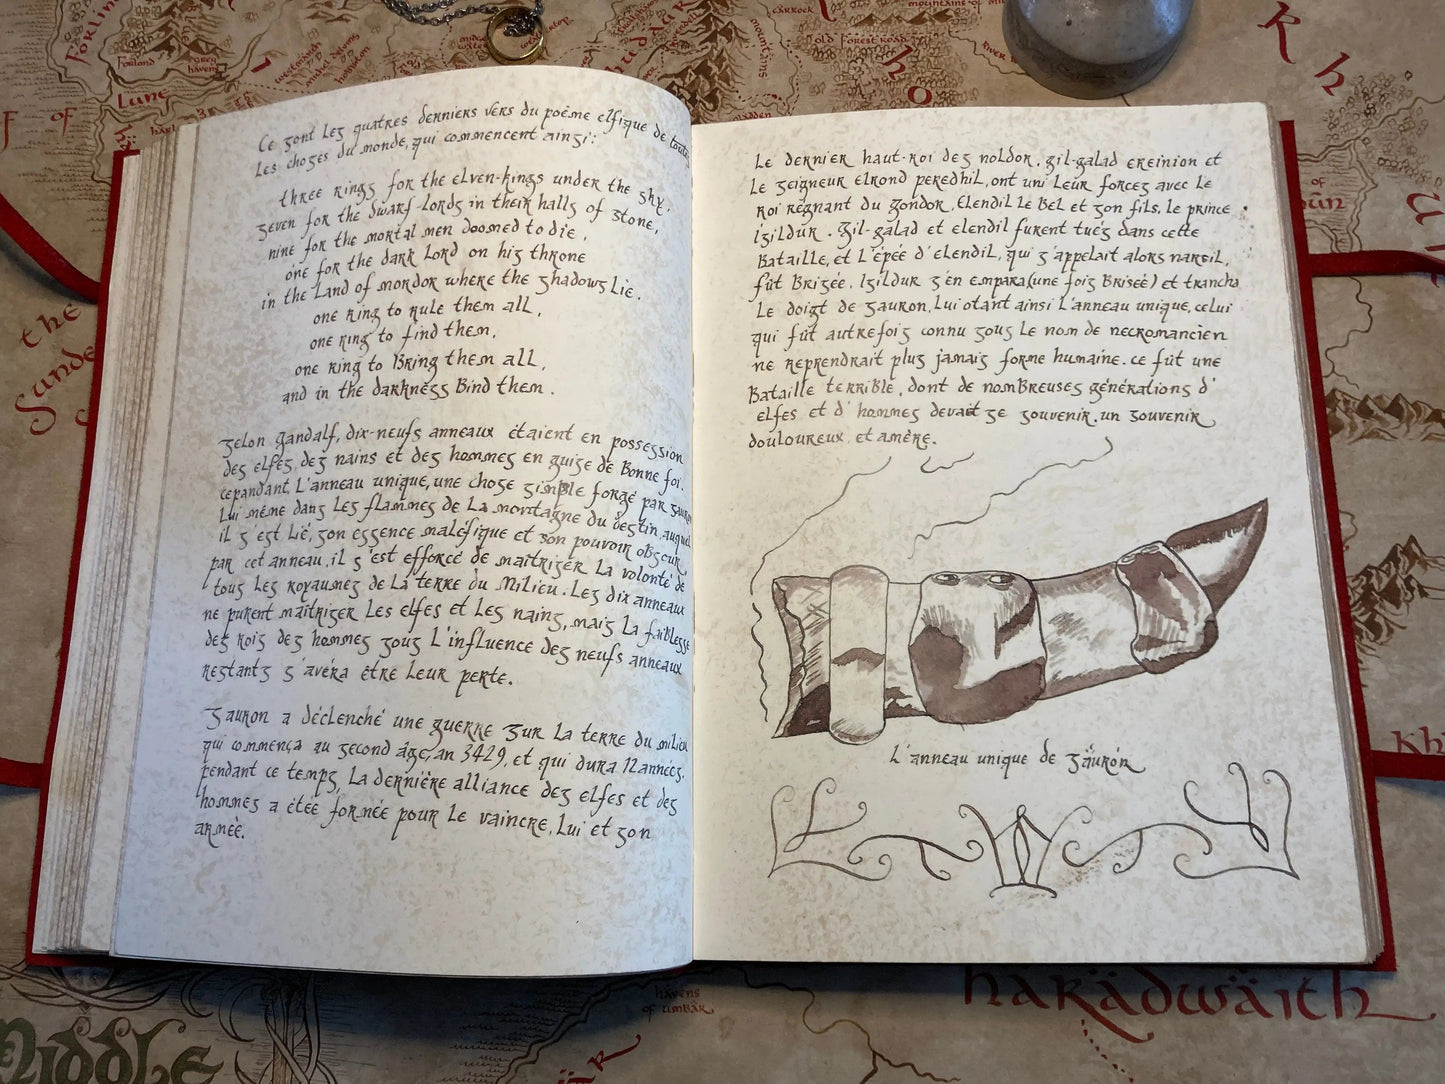 Forlond
Grey havens
Lune
Old Forest Road
Carrock
Ce sont les quatres derniers vers du poème elfique de toutes
les choses du monde, qui commencent ainsi:
three rings for the elven-kings under the sky,
seven for the dwarf-lords in their halls of stone,
nine for the mortal men doomed to die,
one for the dark lord on his throne
in the land of mordor where the shadows lie.
one ring to rule them all,
one ring to find them,
one ring to bring them all,
and in the darkness bind them.
selon gandalf, dix-neufs anneaux étaient en possession
des elfes, des nains et des hommes en guise de bonne foi.
cepandant, l'anneau unique, une chose simple forgé par sauron
lui même dans les flammes de la montagne du destin, auquel
il s'est lié, son essence maléfique et son pouvoir obscur,
par cet anneau, il s'est efforcé de maîtriser la volonté de
tous les royaumes de la terre du milieu. les dix anneaux
ne purent maîtriser les elfes et les nains, mais la faiblesse
des rois des hommes sous l'influence des neufs anneaux
restants s'avéra être leur perte.
sauron a déclenché une guerre sur la terre du milieu
qui commença au second âge, an 3429, et qui dura 12 années.
pendant ce temps, la dernière alliance des elfes et des
hommes a étéé formée pour le vaincre, lui et son
armée.
le dernier haut-roi des noldor, gil-galad ereinion et
le seigneur elrond peredhil, ont uni leur forces avec le
roi régnant du gondor, elendil le bel et son fils, le prince
isildur. gil-galad et elendil furent tués dans cette
bataille, et l'épée d'elendil, qui s'appelait alors narsil,
fût brisée, isildur s'en empara (une fois brisée) et trancha
le doigt de sauron, lui otant ainsi l'anneau unique, celui
qui fût autrefois connu sous le nom de necromancien
ne reprendrait plus jamais forme humaine. ce fût une
bataille terrible, dont de nombreuses générations d'
elfes et d'hommes devait se souvenir. un souvenir
douloureux et amère.
l'anneau unique de sauron
the
Sunde
Haradwaith
havens of umbar
Middle